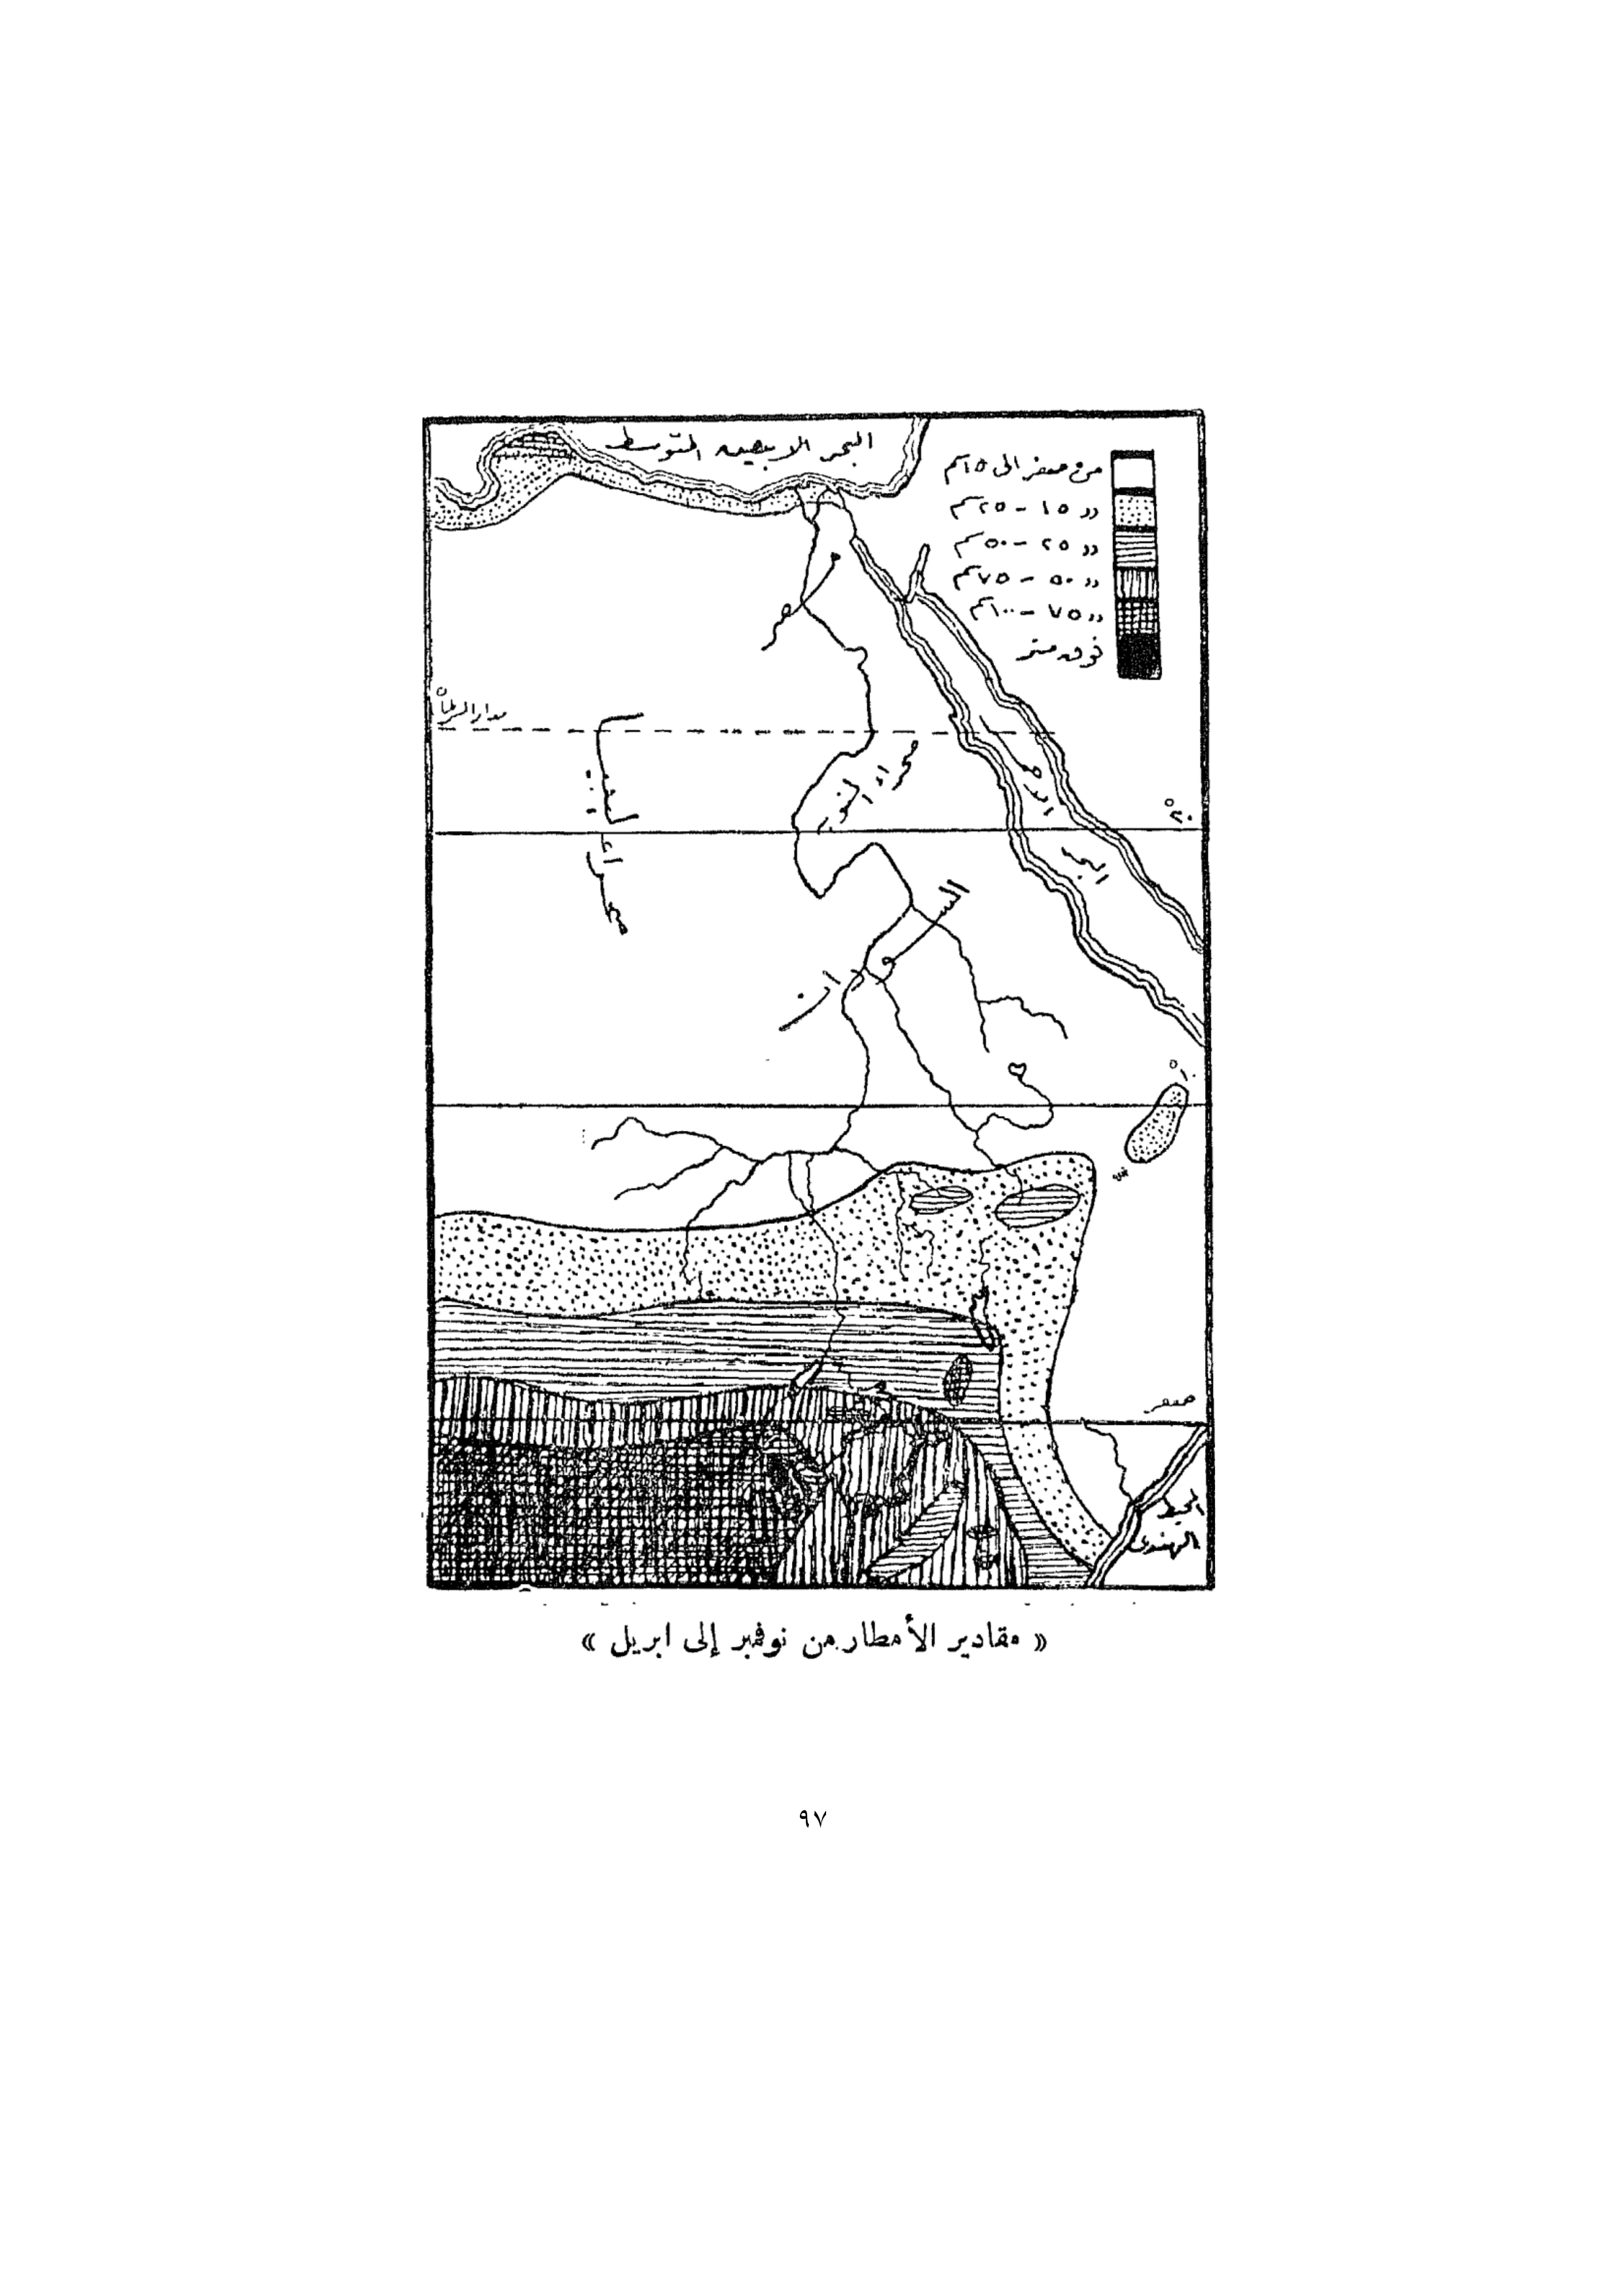 البحر الابيض المتوسط
من صفر الى ١٥ سم
« ١٥ - ٢٥ سم
« ٢٥ - ٥٠ سم
« ٥٠ - ٧٥ سم
« ٧٥ - ١٠٠ سم
فوق متر
مصر
مدار السرطان
صحراء النوبة
صحراء ليبيا
البحر الاحمر
٢٠°
السودان
١٠°
صفر
المحيط
الهندى
« مقادير الأمطار من نوفمبر إلى ابريل »
٩٧